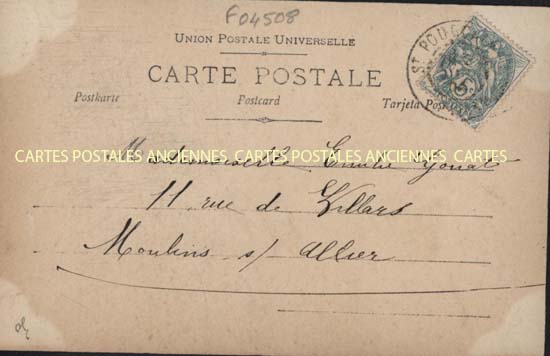 F04508
UNION POSTALE UNIVERSELLE
CARTE POSTALE
Postkarte Postcard Tarjeta Postal
ST POURÇAIN
CARTES POSTALES ANCIENNES CARTES POSTALES ANCIENNES CARTES
Mademoiselle Emilie
11 rue de Villars
Moulins s/ Allier